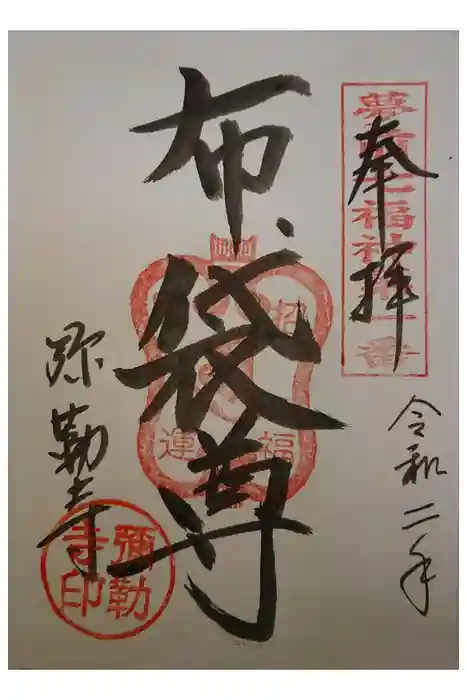 夢前七福神第一番
奉拝
令和二年
布袋尊
招福
運
弥勒寺
彌勒寺印